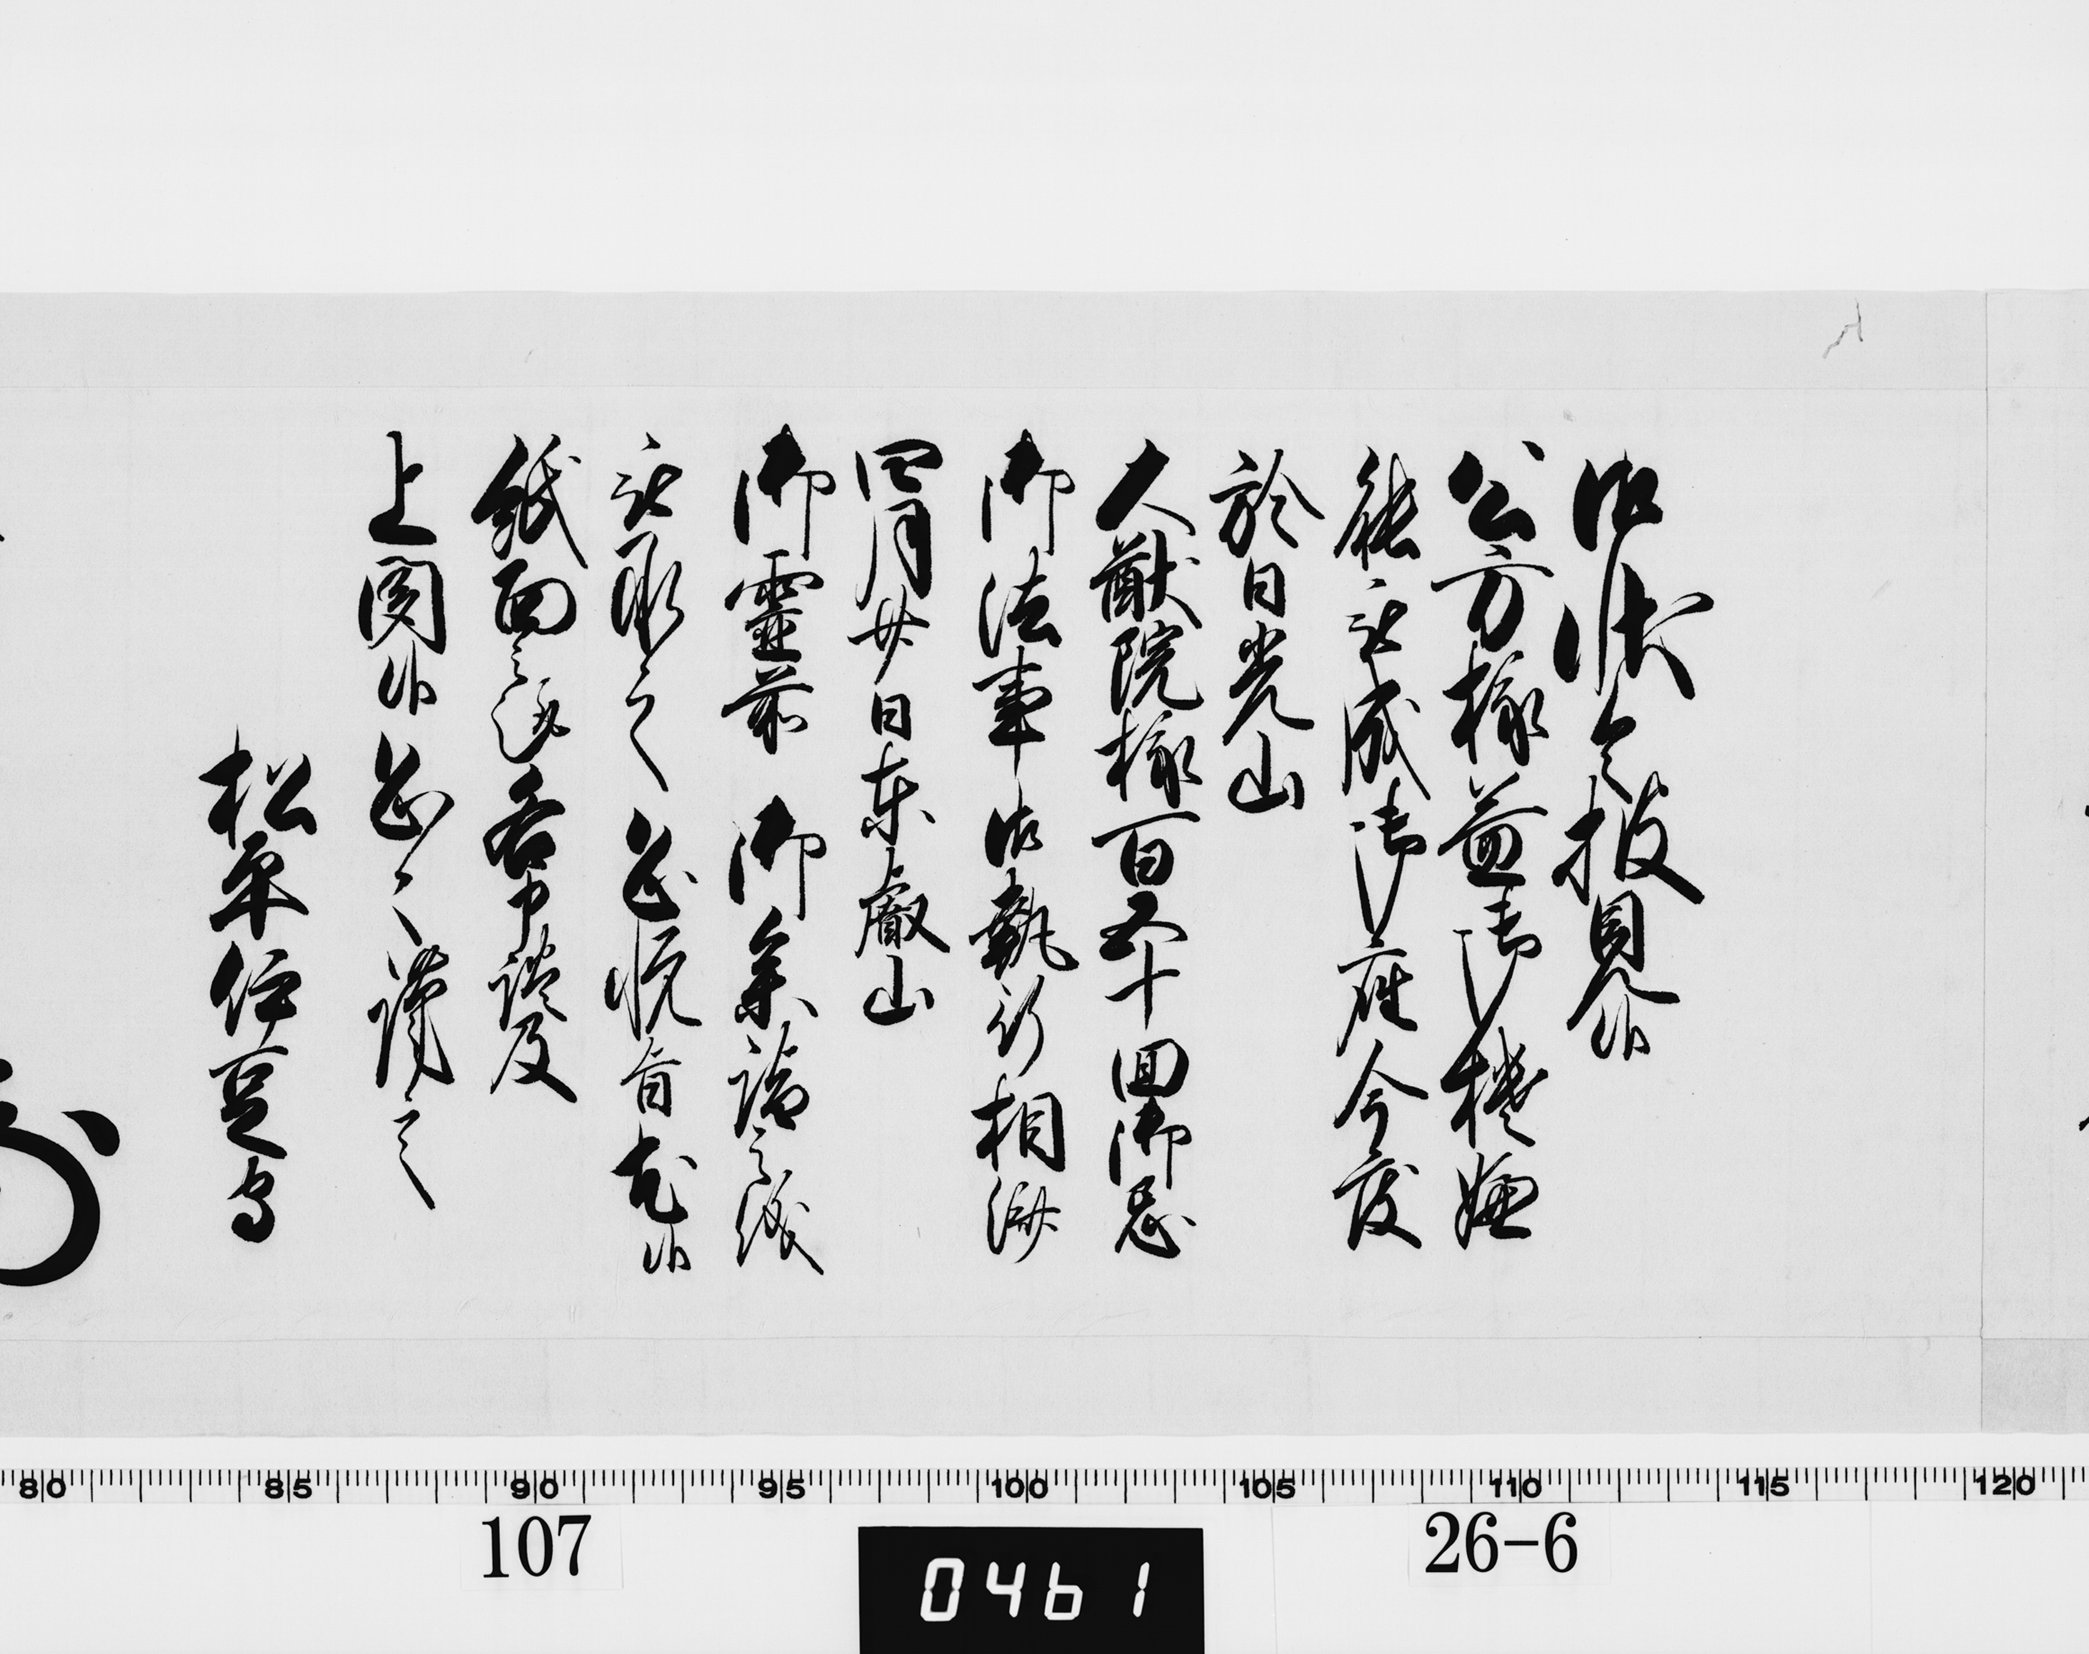 御状令披見候
公方様益御機嫌
能被成御座今度
於日光山
大猷院様百五十回御忌
御法事御執行相済
四月廿日東叡山
御霊前 御参詣之儀
被承之 恐悦旨尤候
紙面之趣各申談及
上聞候 恐々謹言
松平伊豆守
80 85 90 95 100 105 110 115 120
107
0461
26-6